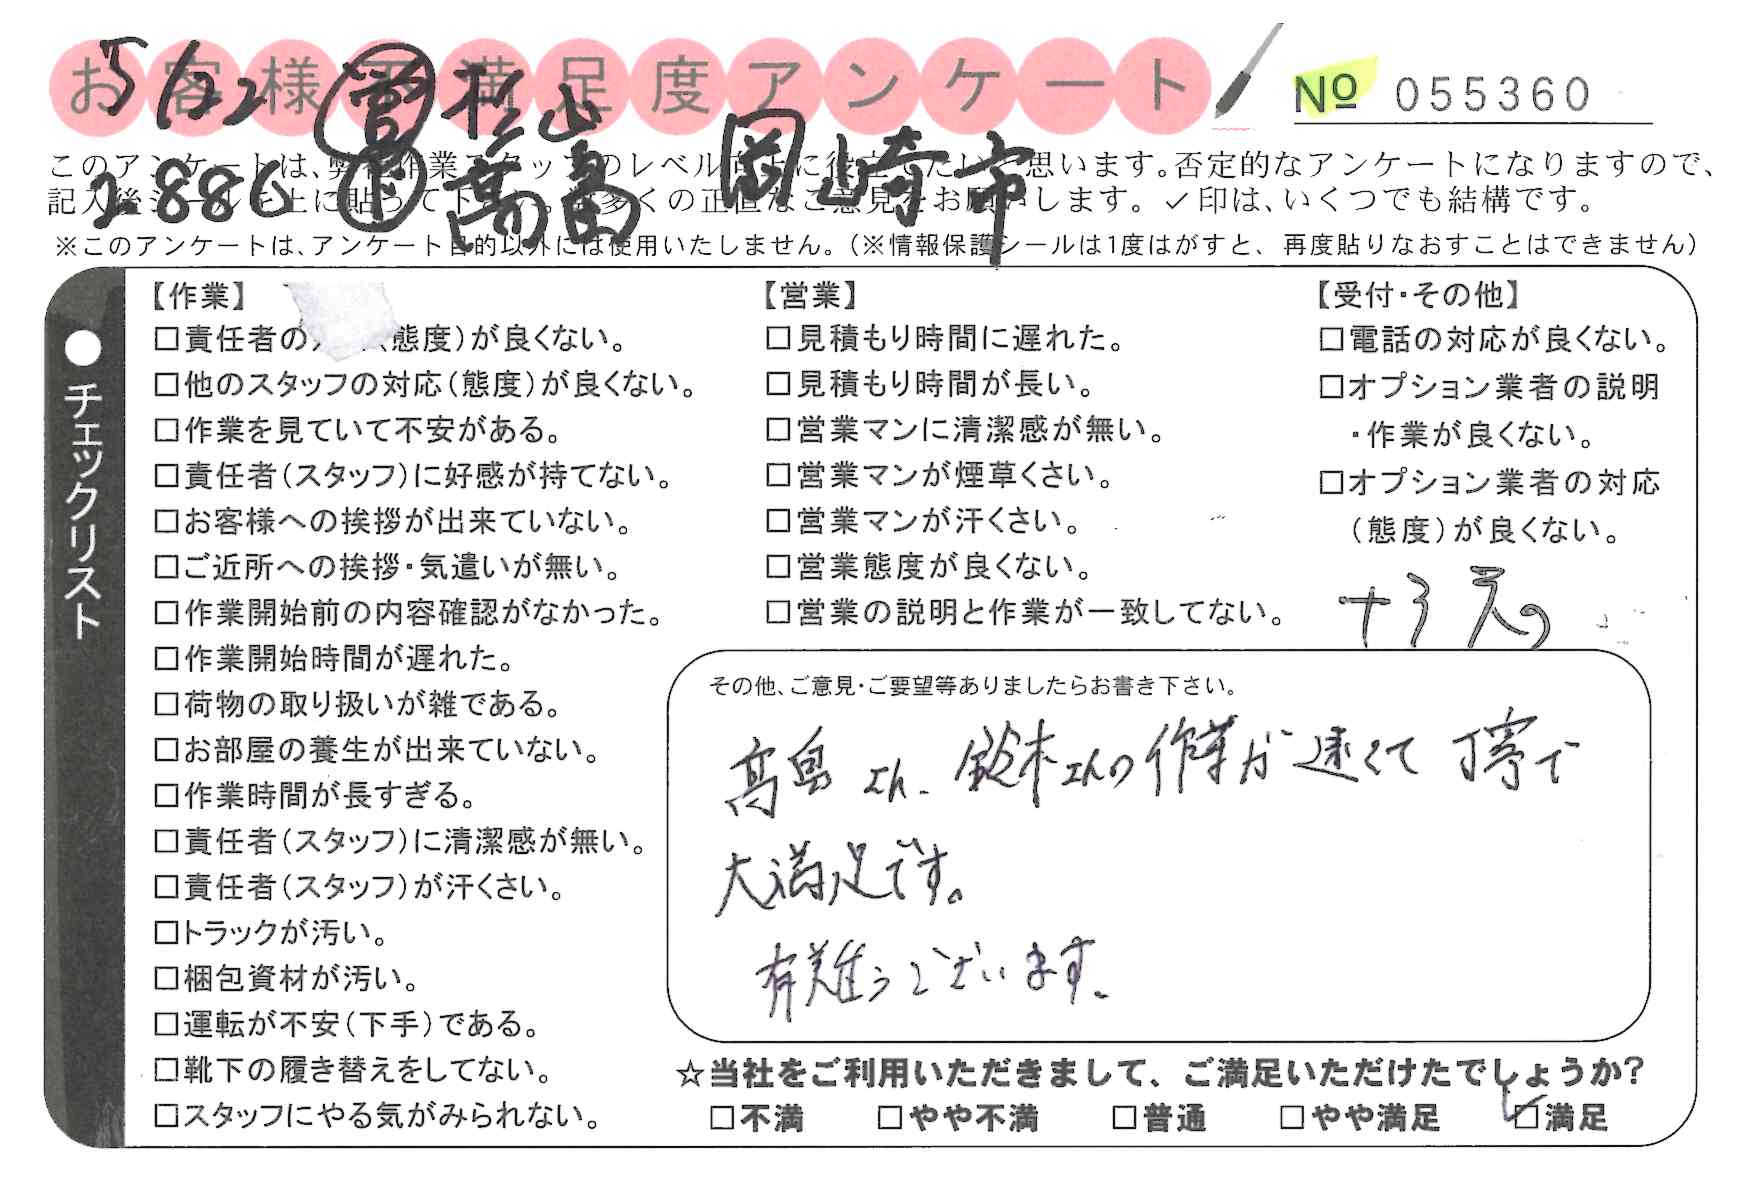 お客様不満足度アンケート
№ 055360
5/22 営 杉山
2886 作 高島 岡崎市
このアンケートは、弊社作業スタッフのレベル向上に役立てたいと思います。否定的なアンケートになりますので、
記入後シールを上に貼って下さい。数多くの正直なご意見をお願いします。✓印は、いくつでも結構です。
※このアンケートは、アンケート目的以外には使用いたしません。（※情報保護シールは1度はがすと、再度貼りなおすことはできません）
●チェックリスト
【作業】
□責任者の（態度）が良くない。
□他のスタッフの対応（態度）が良くない。
□作業を見ていて不安がある。
□責任者（スタッフ）に好感が持てない。
□お客様への挨拶が出来ていない。
□ご近所への挨拶・気遣いが無い。
□作業開始前の内容確認がなかった。
□作業開始時間が遅れた。
□荷物の取り扱いが雑である。
□お部屋の養生が出来ていない。
□作業時間が長すぎる。
□責任者（スタッフ）に清潔感が無い。
□責任者（スタッフ）が汗くさい。
□トラックが汚い。
□梱包資材が汚い。
□運転が不安（下手）である。
□靴下の履き替えをしてない。
□スタッフにやる気がみられない。
【営業】
□見積もり時間に遅れた。
□見積もり時間が長い。
□営業マンに清潔感が無い。
□営業マンが煙草くさい。
□営業マンが汗くさい。
□営業態度が良くない。
□営業の説明と作業が一致してない。
【受付・その他】
□電話の対応が良くない。
□オプション業者の説明
・作業が良くない。
□オプション業者の対応
（態度）が良くない。
その他、ご意見・ご要望等ありましたらお書き下さい。
高島さん、鈴木さんの作業が速くて丁寧で
大満足です。
有難うございます。
☆当社をご利用いただきまして、ご満足いただけたでしょうか?
□不満 □やや不満 □普通 □やや満足 ☑満足